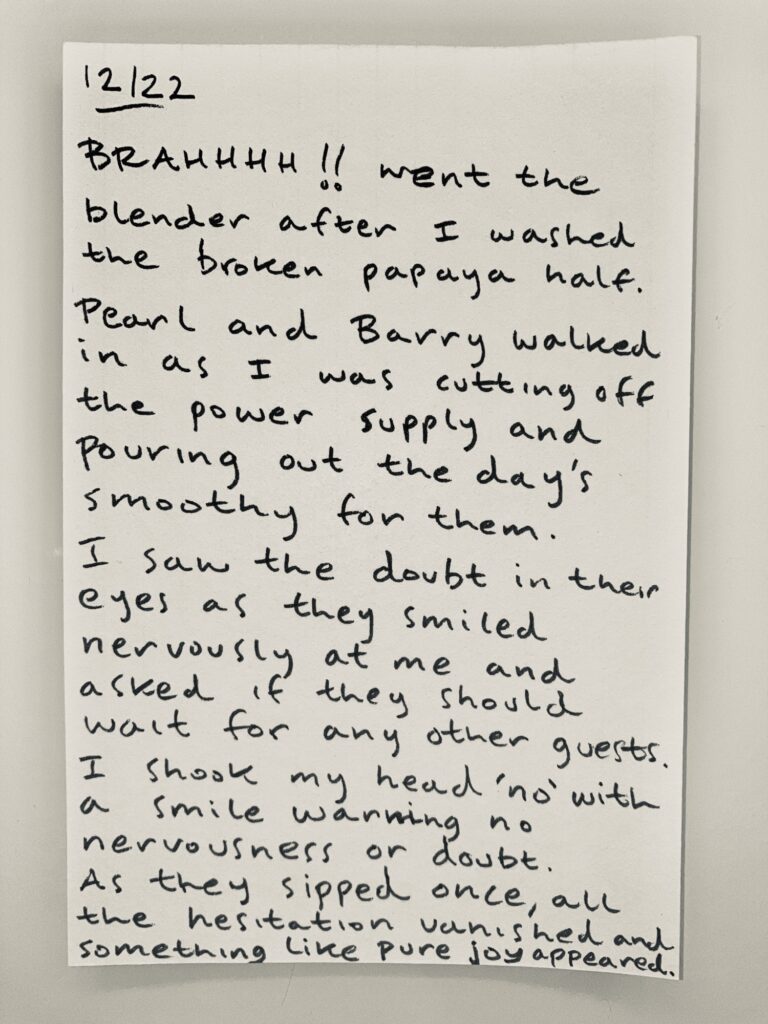 12/22
BRAHHHH!! went the
blender after I washed
the broken papaya half.
Pearl and Barry walked
in as I was cutting off
the power supply and
pouring out the day's
smoothy for them.
I saw the doubt in their
eyes as they smiled
nervously at me and
asked if they should
wait for any other guests.
I shook my head 'no' with
a smile warning no
nervousness or doubt.
As they sipped once, all
the hesitation vanished and
something like pure joy appeared.